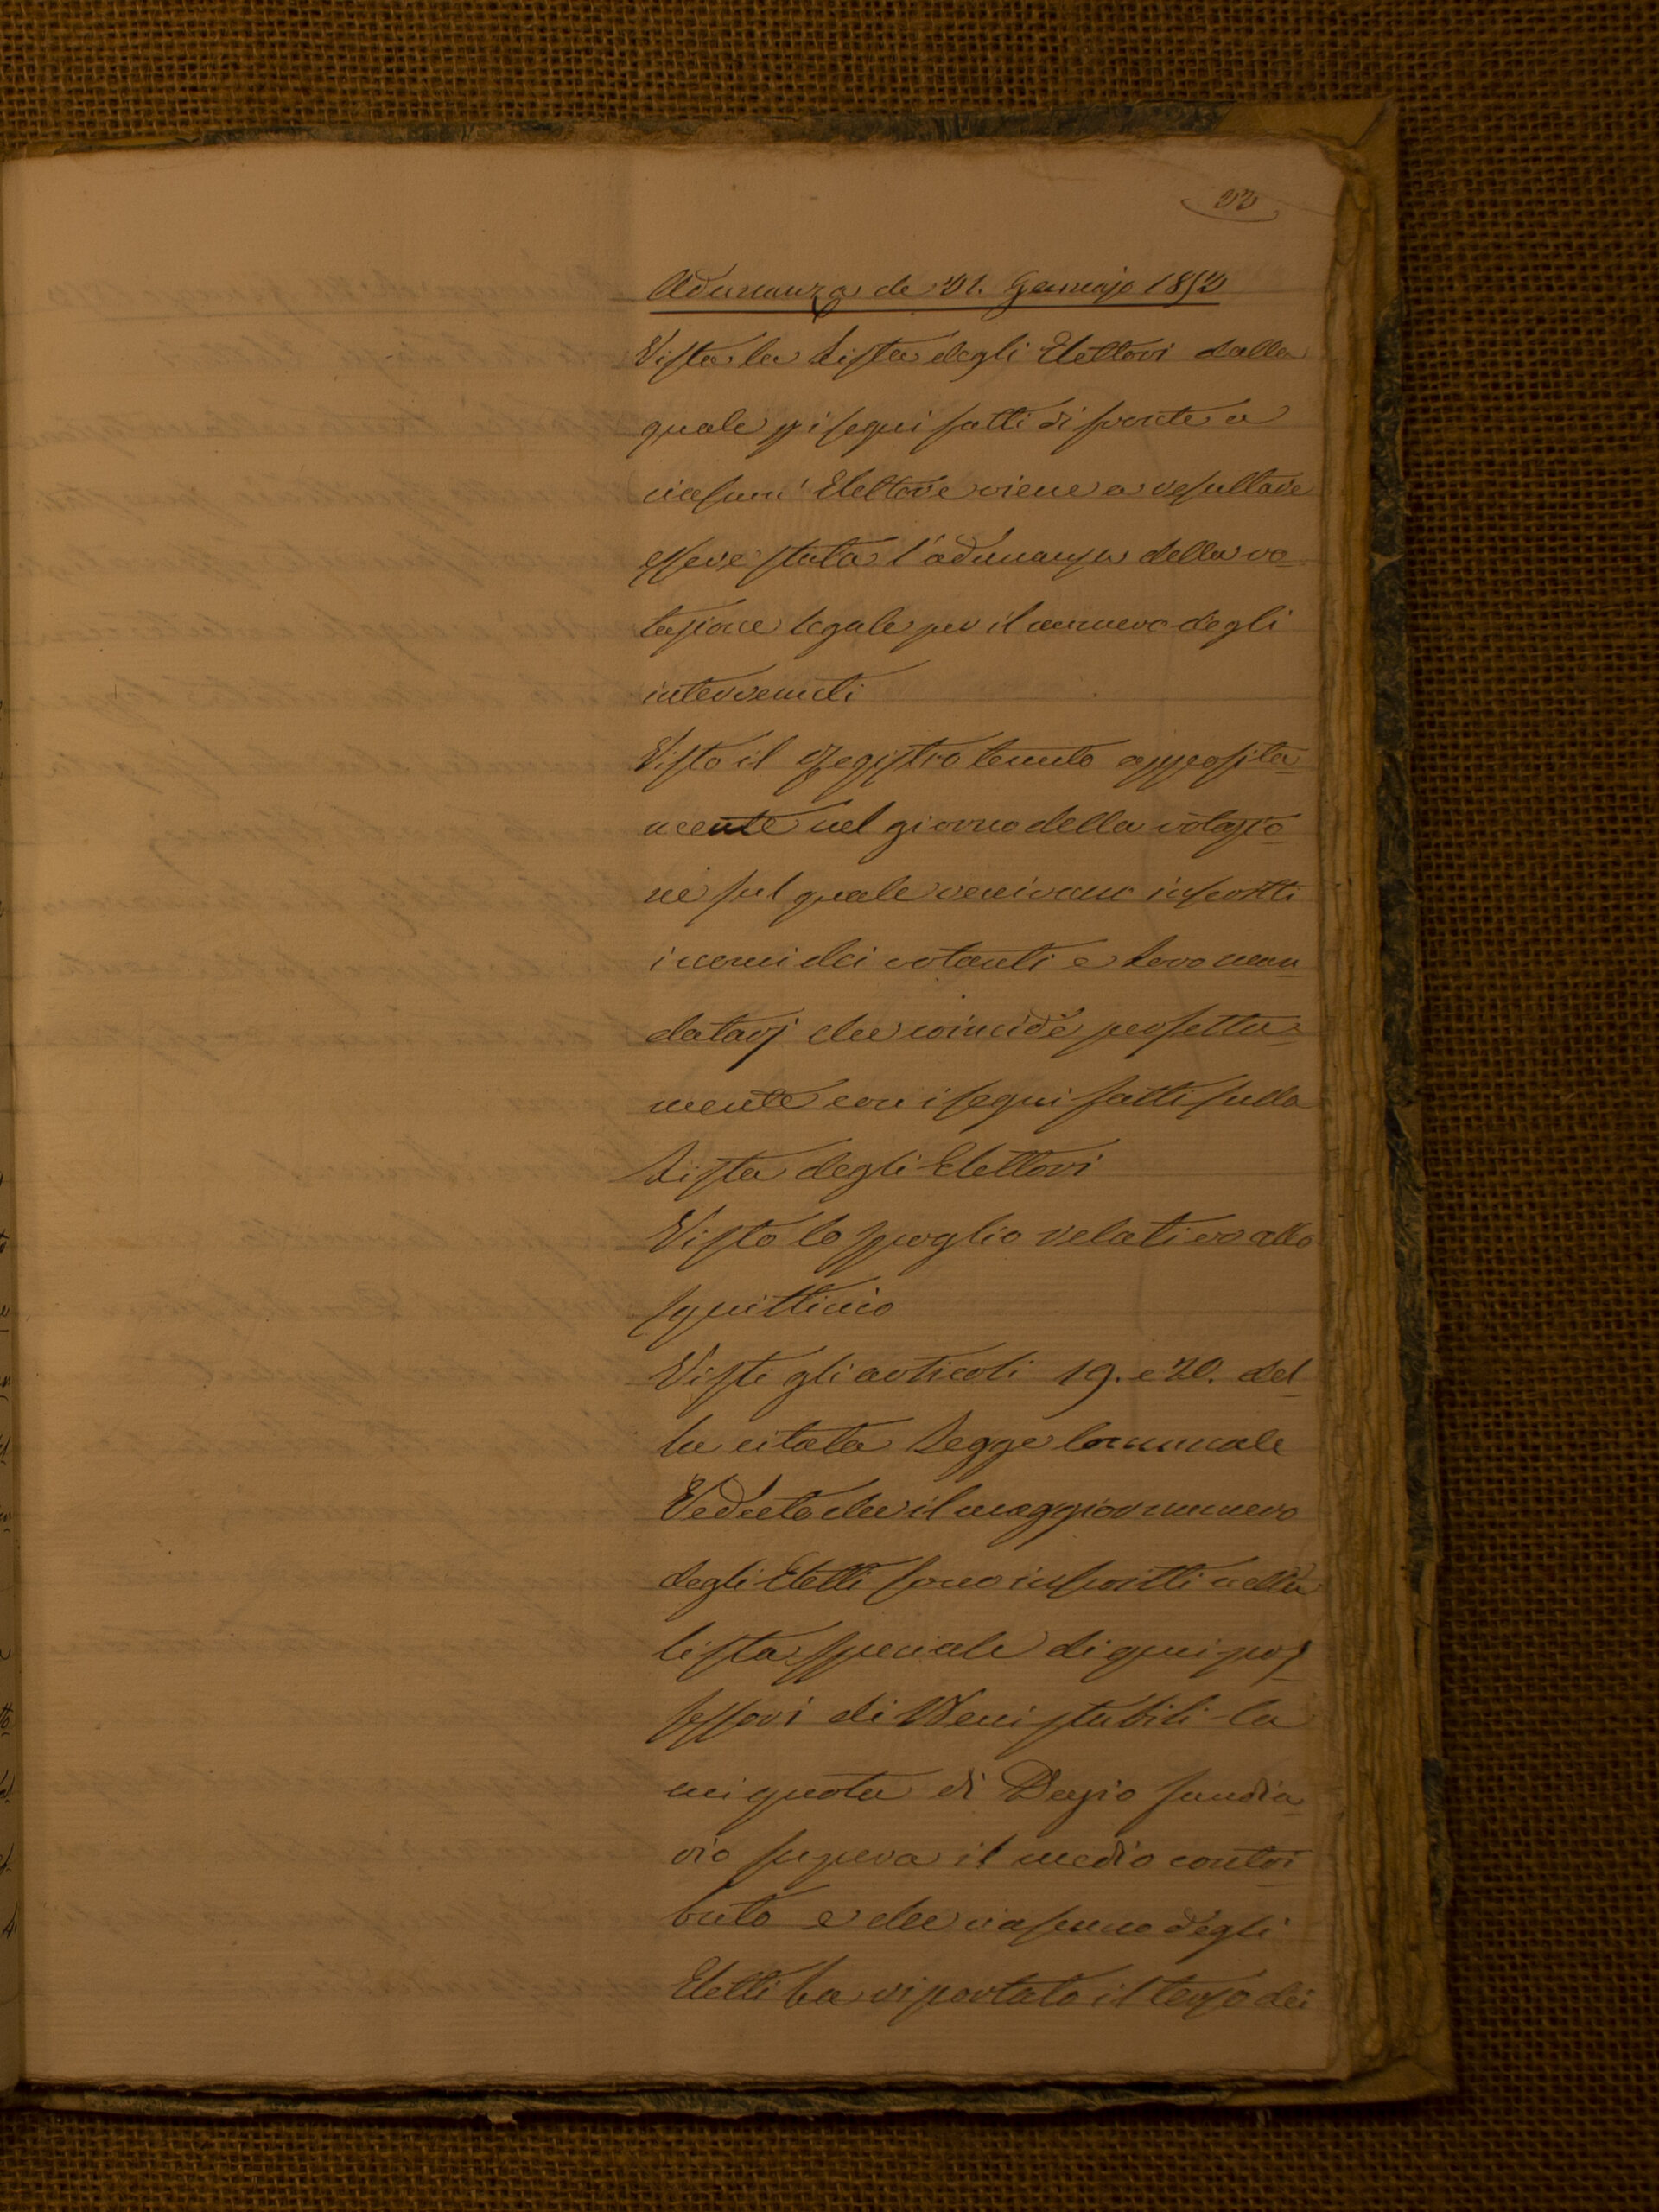 22
Adunanza de 21. Gennajo 1852
Vista la Lista degli Elettori dalla
quale pi segni fatti di fronte a
ciascun' Elettore viene a resultare
essere stata l'adunanza della vo-
tazione legale per il numero degli
intervenuti
Visto il Registro tenuto apposita-
mente nel giorno della votazio-
ne sul quale venivano inscritti
i nomi dei votanti e Loro man-
datarj che coincide perfetta-
mente con i segni fatti sulla
Lista degli Elettori
Visto lo spoglio relativo allo
squittinio
Visti gli articoli 19. e 20. del-
la citata Legge Comunale
Veduto che il maggior numero
degli Eletti sono inscritti nella
lista speciale di quei pos-
sessori di Beni stabili la
cui quota di Dazio fondia-
rio supera il medio contri-
buto e che ciascuno degli
Eletti ha riportato il terzo dei